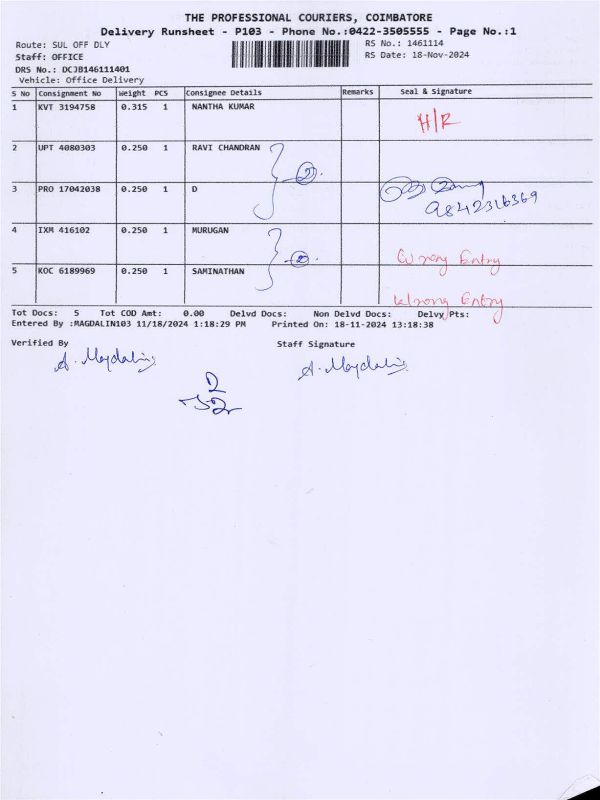 THE PROFESSIONAL COURIERS, COIMBATORE
Delivery Runsheet - P103 - Phone No.:0422-3505555 - Page No.:1
Route: SUL OFF DLY RS No.: 1461114
Staff: OFFICE RS Date: 18-Nov-2024
DRS No.: DCJB146111401
Vehicle: Office Delivery
S No Consignment No Weight PCS Consignee Details Remarks Seal & Signature
1 KVT 3194758 0.315 1 NANTHA KUMAR H/R
2 UPT 4080303 0.250 1 RAVI CHANDRAN 2
3 PRO 17042038 0.250 1 D 9842316369
4 IXM 416102 0.250 1 MURUGAN 2 Wrong Entry
5 KOC 6189969 0.250 1 SAMINATHAN Wrong Entry
Tot Docs: 5 Tot COD Amt: 0.00 Delvd Docs: Non Delvd Docs: Delvy Pts:
Entered By :MAGDALIN103 11/18/2024 1:18:29 PM Printed On: 18-11-2024 13:18:38
Verified By Staff Signature
A. Magdalin A. Magdalin